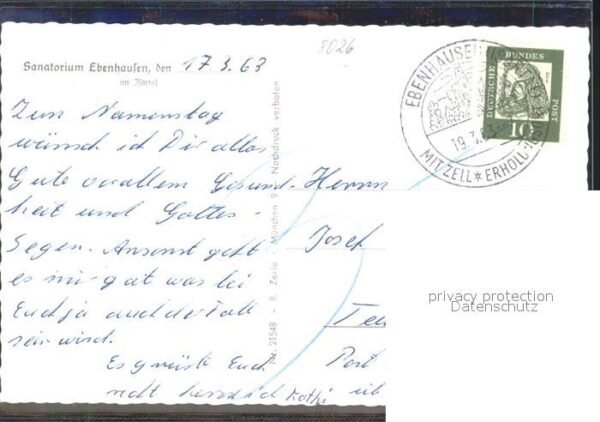 8026
Sanatorium Ebenhausen, den 17.3.63
im Isartal
Zum Namenstag
wünsch ich Dir alles
Gute vor allem Gesund-
heit und Gottes-
Segen. Ansonst geht
es mir gut was bei
Euch ja auch der Fall
sein wird.
Es grüßt Euch
recht herzlich Kathi
Nr. 21548 - R. Zerle - München 9 - Nachdruck verboten
Herrn
Josef
Post
üb
EBENHAUSEN
19.3.6
MIT ZELL * ERHOLU
DEUTSCHE BUNDES POST
10
privacy protection
Datenschutz